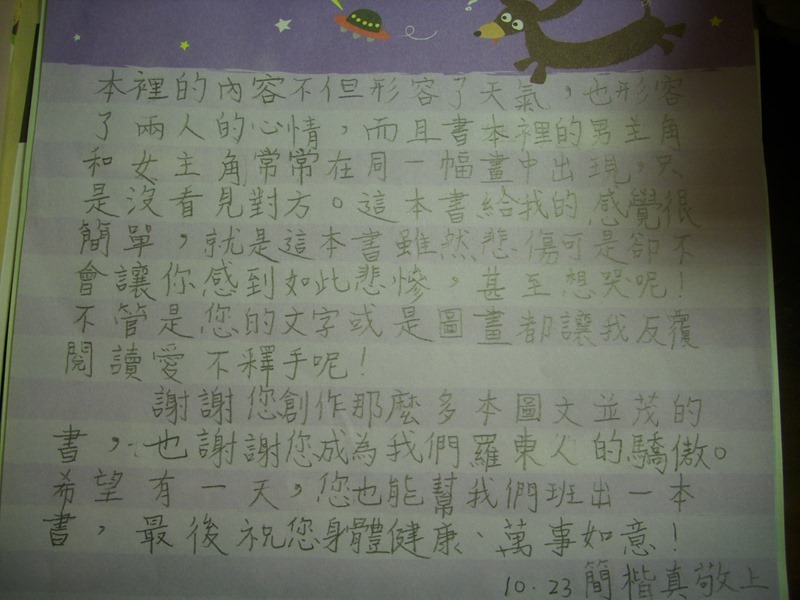 本裡的內容不但形容了天氣，也形容
了兩人的心情，而且書本裡的男主角
和女主角常常在同一幅畫中出現，只
是沒看見對方。這本書給我的感覺很
簡單，就是這本書雖然悲傷可是卻不
會讓你感到如此悲慘，甚至想哭呢！
不管是您的文字或是圖畫都讓我反覆
閱讀愛不釋手呢！
謝謝您創作那麼多本圖文並茂的
書，也謝謝您成為我們羅東人的驕傲。
希望有一天，您也能幫我們班出一本
書，最後祝您身體健康、萬事如意！
10.23簡楷真敬上